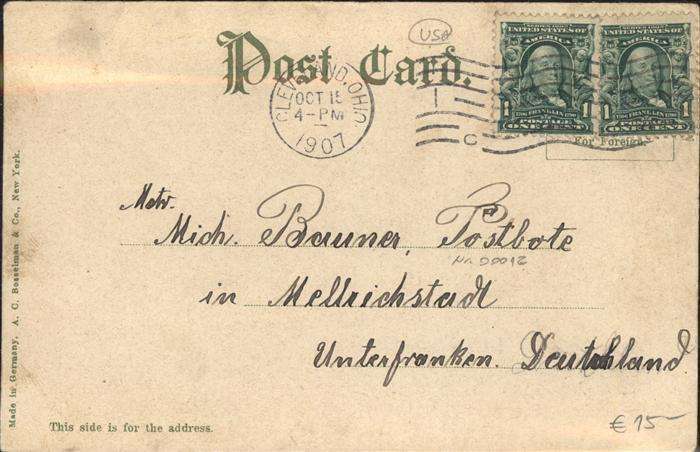 USA
Post Card.
CLEVELAND, OHIO.
OCT 15
4-PM
1907
C
SERIES 1902
UNITED STATES OF
AMERICA
1 FRANKLIN 1
POSTAGE
ONE CENT
SERIES 1902
UNITED STATES OF
AMERICA
1 FRANKLIN 1
POSTAGE
ONE CENT
For Foreign
Mich. Bauner, Postbote
in Mellrichstadt
Unterfranken. Deutschland
Made in Germany. A. C. Bosselman & Co., New York.
This side is for the address.
€ 15-